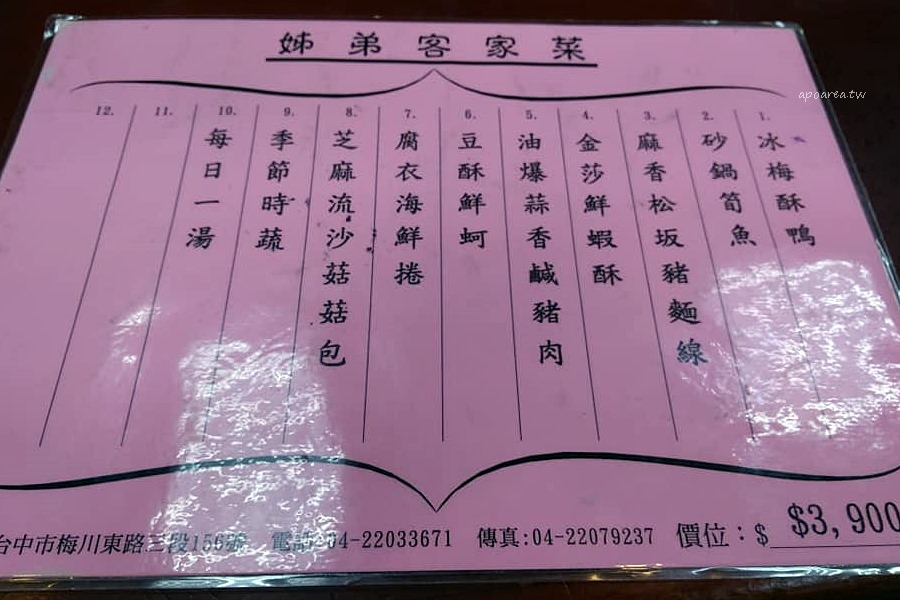 姊弟客家菜
1. 冰梅酥鴨
2. 砂鍋筍魚
3. 麻香松坂豬麵線
4. 金莎鮮蝦酥
5. 油爆蒜香鹹豬肉
6. 豆酥鮮蚵
7. 腐衣海鮮捲
8. 芝麻流沙菇菇包
9. 季節時蔬
10. 每日一湯
11.
12.
台中市梅川東路三段156號 電話:04-22033671 傳真:04-22079237 價位：$ $3,900
apoarea.tw